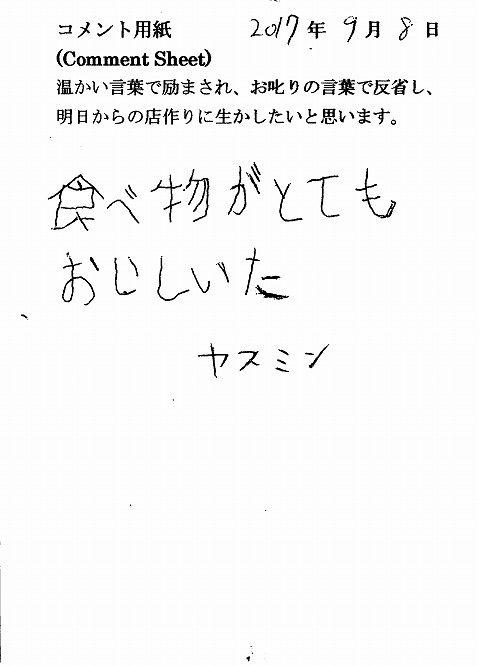 コメント用紙 2017年9月8日
(Comment Sheet)
温かい言葉で励まされ、お叱りの言葉で反省し、
明日からの店作りに生かしたいと思います。
食べ物がとても
おじしいた
ヤスミン